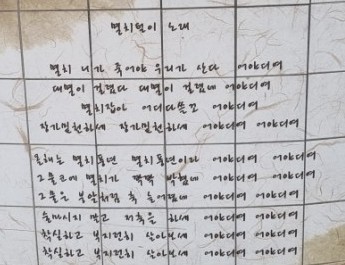 멸치털이 노래
멸치 내가 죽어야 우리가 산다 어야디여
대멸이 걸렸다 대멸이 걸렸네 어야디여
멸치잡아 어디다쓰고 어야디여
장가밑천하세 장가밑천하세 어야디여 어야디여
올해는 멸치풍년 멸치풍년이라 어야디여 어야디여
그물코에 멸치가 꽉꽉 박혔네 어야디여 어야디여
그물은 부랄처럼 축 늘어졌네 어야디여 어야디여
술마시지 말고 저축을 하세 어야디여 어야디여
착실하고 부지런히 살아보세 어야디여 어야디여
착실하고 부지런히 살아보세 어야디여 어야디여